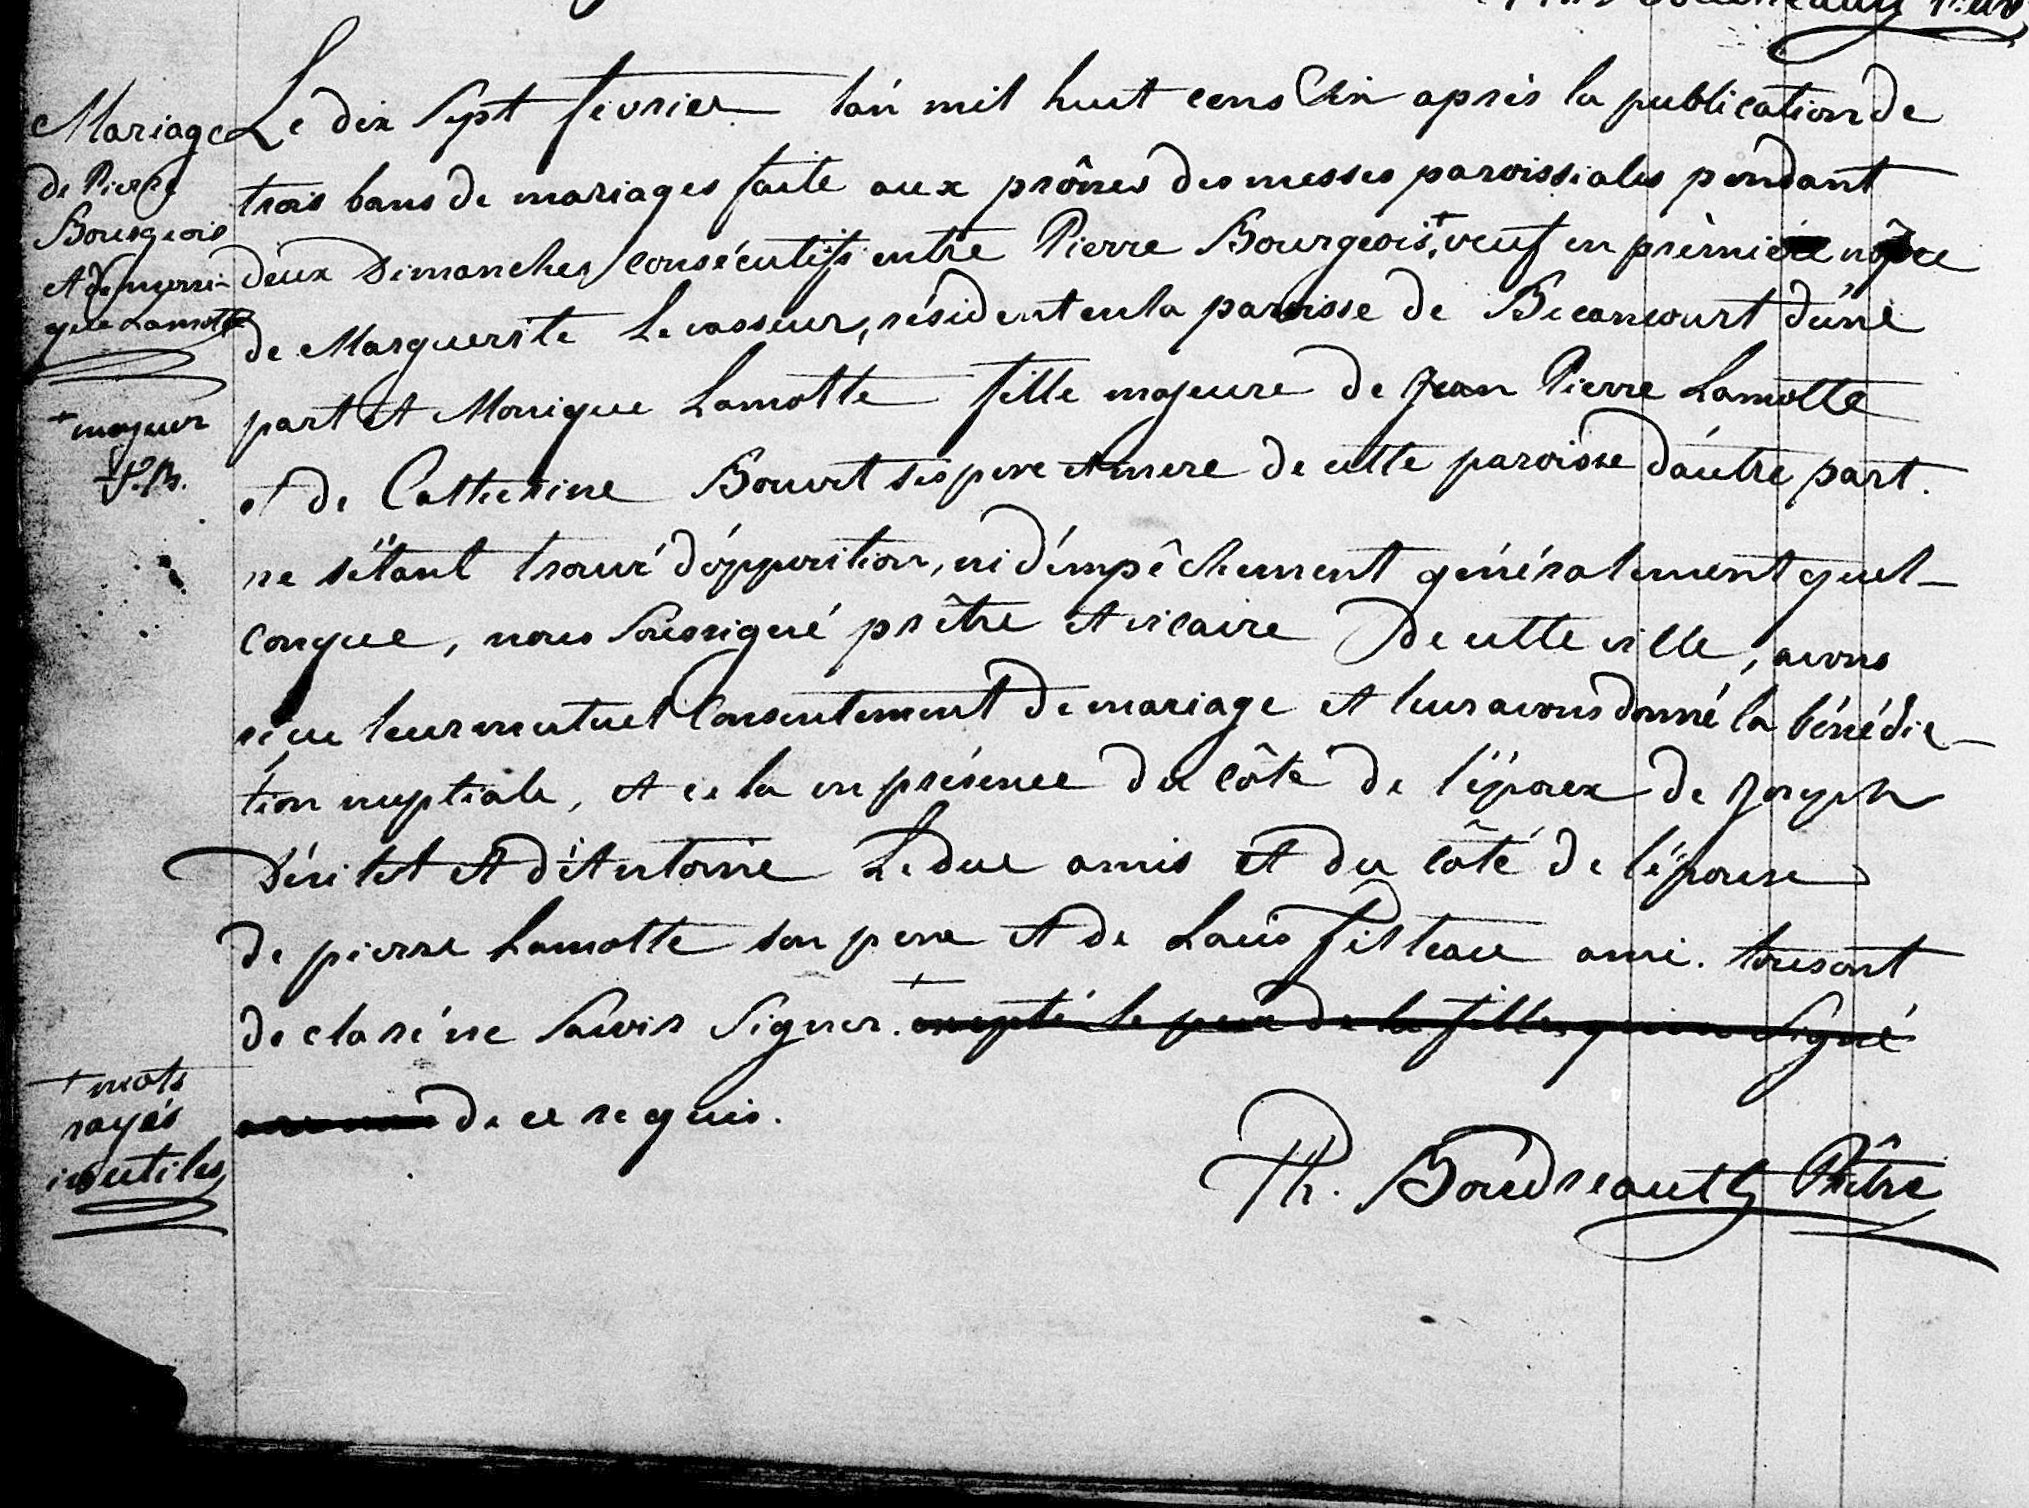 Mariage
de Pierre
Bourgeois
et de moni-
que Lamotte
+ majeur
T.B.
Le dix Sept fevrier l'an mil huit cens dix après la publication de
trois bans de mariages faite aux prônes des messes paroissiales pendant
deux Dimanches consécutifs entre Pierre Bourgeois +, veuf en prèmière nôce
de Marguerite Levasseur, résident en la paroisse de Becancourt d'une
part et Monique Lamotte fille majeure de Jean Pierre Lamotte
et de Catherine ses pere et mere de cette paroisse d'autre part.
ne s'étant trouvé d'opposition, ni d'émpêchement généralement quel-
conque, nous Soussigné prêtre et vicaire De cette ville, avons
reçu leur mutuel Consentement de mariage et leur avons donné la bénédic-
tion nuptiale, et cela en présence du côté de l'époux de Joseph
et d'Antoine Leduc amis et du côté de l'épouse
de pierre Lamotte son pere et de Louis Filteau ami. tous ont
declaré ne Savoir Signer. + excepté le pere de la fille qui a Signé
de ce requis.
Th. Boudreault Prêtre
+ mots
rayés
inutiles